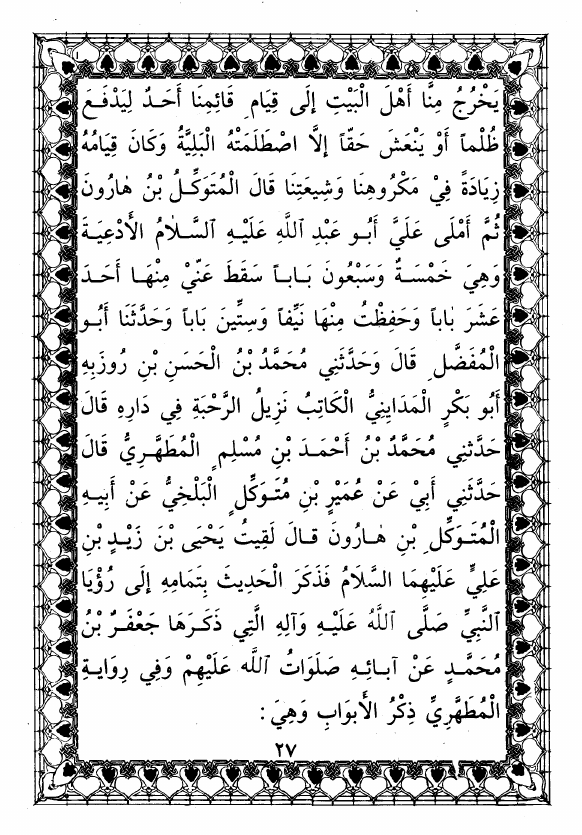 يَخْرُجُ مِنَّا أَهْلَ الْبَيْتِ إِلَى قِيَامِ قَائِمِنَا أَحَدٌ لِيَدْفَعَ
ظُلْماً أَوْ يَنْعَشَ حَقّاً إِلَّا اصْطَلَمَتْهُ الْبَلِيَّةُ وَكَانَ قِيَامُهُ
زِيَادَةً فِيْ مَكْرُوهِنَا وَشِيعَتِنَا قَالَ الْمُتَوَكِّلُ بْنُ هٰارُونَ
ثُمَّ أَمْلَى عَلَيَّ أَبُو عَبْدِ اللَّهِ عَلَيْهِ السَّلاٰمُ الأَدْعِيَةَ
وَهِيَ خَمْسَةٌ وَسَبْعُونَ بَاباً سَقَطَ عَنِّيْ مِنْهَا أَحَدَ
عَشَرَ بٰاباً وَحَفِظْتُ مِنْهَا نَيِّفاً وَسِتِّينَ بَاباً وَحَدَّثَنَا أَبُو
الْمُفَضَّلِ قَالَ وَحَدَّثَنِي مُحَمَّدُ بْنُ الْحَسَنِ بْنِ رُوزَبِهِ
أَبُو بَكْرٍ الْمَدَايِنِيُّ الْكَاتِبُ نَزِيلُ الرَّحْبَةِ فِي دَارِهِ قَالَ
حَدَّثَنِي مُحَمَّدُ بْنُ أَحْمَدَ بْنِ مُسْلِمٍ الْمُطَهَّرِيُّ قَالَ
حَدَّثَنِي أَبِيْ عَنْ عُمَيْرِ بْنِ مُتَوَكِّلٍ الْبَلْخِيُّ عَنْ أَبِيهِ
الْمُتَوَكِّلِ بْنِ هٰارُونَ قَالَ لَقِيتُ يَحْيَى بْنَ زَيْدِ بْنِ
عَلِيٍّ عَلَيْهِمَا السَّلاَمُ فَذَكَرَ الْحَدِيثَ بِتَمَامِهِ إِلَى رُؤْيَا
النَّبِيِّ صَلَّى اللَّهُ عَلَيْهِ وَآلِهِ الَّتِي ذَكَرَهَا جَعْفَرُ بْنُ
مُحَمَّدٍ عَنْ آبَائِهِ صَلَوَاتُ اللَّهِ عَلَيْهِمْ وَفِي رِوَايَةِ
الْمُطَهَّرِيِّ ذِكْرُ الأَبوَابِ وَهِيَ :
٢٧